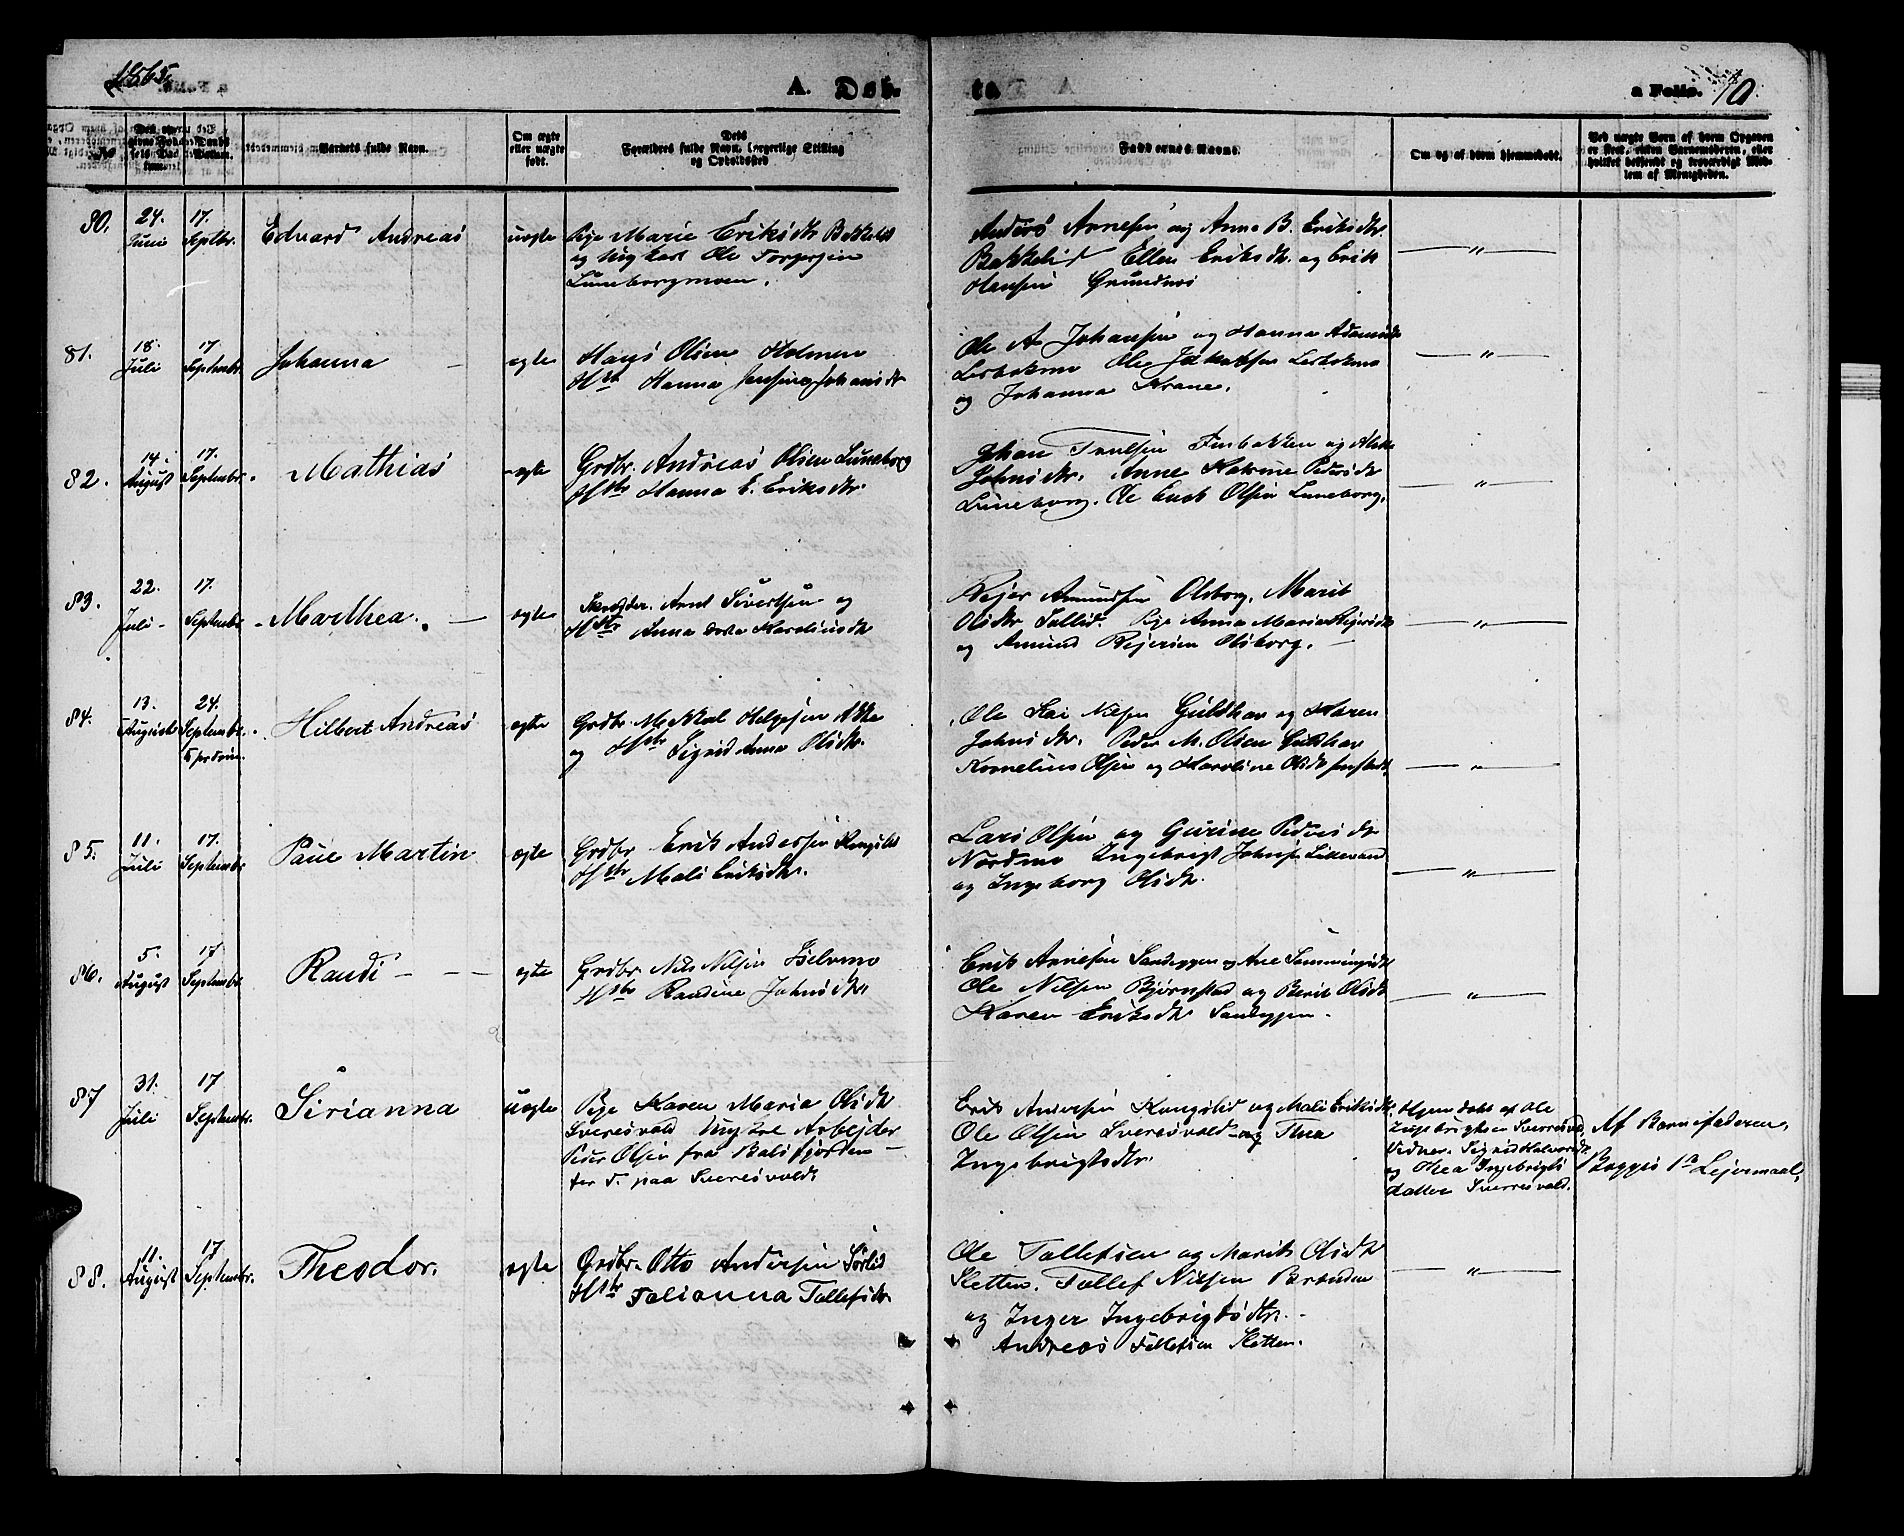 1865.
A. Døb-
te
a Folio. 70
No
Barnets fulde Navn.
Om ægte eller uægte født.
Forældres fulde Navn, borgerlige Stilling og Opholdssted
Faddernes Navne.
Om og af hvem hjemmedøbt.
Ved uægte Børn af hvem Opgaven er skeet, enten Barnemoderen, eller hvilket bekjendt og troværdigt Medlem af Menigheden.
80.
24. Juni
17. Septbr.
Edvard Andreas
uægte
Pige Marie Eriksdtr Bakkelid
og Ungkarl Ole Torgersen
Luneborgmoen.
Anders Arnesen og Anne B. Eriksdtr.
Bakkelid Ellen Eriksdtr. og Erik
Hansen Grundnes
— " —
81.
18. Juli
17. Septembr.
Johanna
ægte
Hans Olsen Holmen
Hstr Hanna Johansdtr
Ole A Johansen og Hanna Adamsdtr
Ole Jakobsen
og Johanna Krane.
— " —
82.
14. August
17. Septembr.
Mathias
ægte
Grdbr. Andreas Olsen Luneborg
Hstr Hanna E. Eriksdtr.
Johan Troelsen og
Johnsdtr. Anne Katrine Pedersdtr
Luneborg. Ole Erik Olsen Luneborg.
— " —
83.
22. Juli
17. Septembr
Marthea.
ægte
Arnt Sivertsen og
Hstr Anna Dorte Karoliusdtr
Rejer Amundsen Olsborg. Marit
Olsdtr Sollid. Pige Anna Marie Rejersdtr
og Amund Rejersen Olsborg.
— " —
84.
13. August
24. Septembr.
Hilbert Andreas
ægte
Grdbr. Mikkal Helgesen
og Hstr Sigrid Anna Olsdtr.
Ole Kai Nilsen Gulhav og Karen
Johnsdtr. Peder M. Olsen Gulhav
Kornelius Olsen og Karoline Olsdtr
— " —
85.
11. Juli
17. Septembr
Paul Martin
ægte
Grdbr Erik Andersen Kongslid
Hstr Mali Eriksdtr.
Lars Olsen og Gurine Pedersdtr
Nordmo Ingebrigt Johnsen
og Ingeborg Olsdtr.
— " —
86.
5. August
17 Septembr.
Randi
ægte
Grdbr. Nils Nilsen Iselvmo
Hstr Randine Johnsdtr
Erik Arnesen Sandeggen og Ane
Ole Nilsen Bjørnstad og Berit Olsdtr
Karen Eriksdtr Sandeggen.
— " —
87
31. Juli
17 Septembr.
Sirianna
uægte
Pige Karen Maria Olsdtr
Sverresvold Ungkarl Arbejder
Peder Olsen fra Balsfjorden
paa Sverresvold.
Erik Andersen Kongslid og Mali Eriksdtr.
Ole Olsen Sverresvold og Thea
Ingebrigtsdtr.
Hjemdøbt af Ole
Ingebrigtsen Sverresvold,
Vidner. Sigrid Halvorsdtr.
og Thea Ingebrigts
datter Sverresvold.
Af Barnefaderen.
Begges 1ste Lejermaal.
88.
11. August
17 Septembr.
Theodor.
ægte
Grdbr. Otto Andersen Sørlid
Hstr Tolianna Tollefsdtr.
Ole Tollefsen og Marit Olsdtr
Sletten. Tollef Nilsen Brænden
og Inger Ingebrigtsdtr.
Andreas Tollefsen Sletten.
— " —